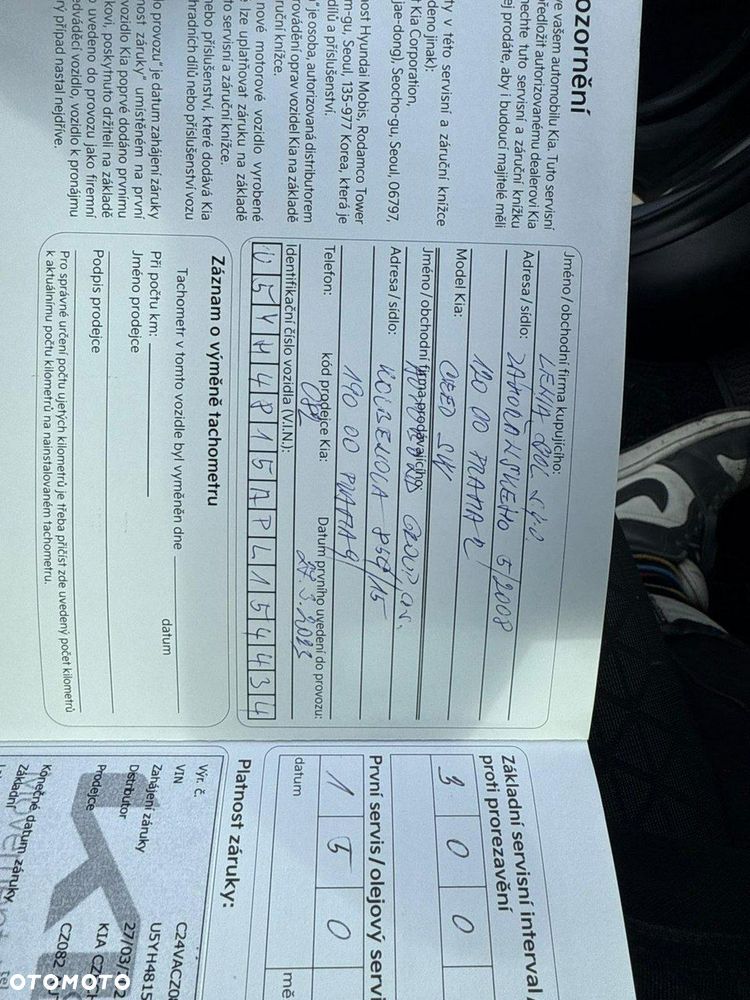 ozornění
re vašem automobilu Kia. Tuto servisní
ředložit autorizovanému dealerovi Kia
nechte tuto servisní a záruční knížku
ej prodáte, aby i budoucí majitelé měli
ty v této servisní a záruční knížce
deno jinak):
t Kia Corporation,
jae-dong), Seocho-gu, Seoul, 06797,
ost Hyundai Mobis, Rodamco Tower
m-gu, Seoul, 135-977 Korea, která je
dílů a příslušenství.
" je osoba, autorizovaná distributorem
rovádění oprav vozidel Kia na základě
ruční knížce.
nové motorové vozidlo vyrobené
e lze uplatňovat záruku na základě
to servisní a záruční knížce.
nebo příslušenství, které dodává Kia
hradních dílů nebo příslušenství vozu
do provozu" je datum zahájení záruky
nost záruky" umístěném na první
vozidlo Kia poprvé dodáno prvnímu
kovi, poskytnuto držiteli na základě
o uvedeno do provozu jako firemní
edváděcí vozidlo, vozidlo k pronájmu
rý případ nastal nejdříve.
Jméno/obchodní firma kupujícího:
s.r.o.
Adresa/sídlo:
5/2008
120 00 PRAHA 2
Model Kia:
CEED SW
Jméno/obchodní firma prodávajícího:
GROUP a.s.
Adresa/sídlo:
KOLBENOVA 859/15
190 00 PRAHA 9
Telefon:
kód prodejce Kia:
Datum prvního uvedení do provozu:
082
27.3.2023
Identifikační číslo vozidla (V.I.N.):
U5YH4815APL154434
Záznam o výměně tachometru
Tachometr v tomto vozidle byl vyměněn dne
datum
Při počtu km:
Jméno prodejce
Podpis prodejce
Pro správné určení počtu ujetých kilometrů je třeba přičíst zde uvedený počet kilometrů
k aktuálnímu počtu kilometrů na nainstalovaném tachometru.
Základní servisní interval /
proti prorezavění
3 0 0
První servis/olejový servi
1 5 0
datum
mě
Platnost záruky:
Výr. č.
C24VACZ0
VIN
U5YH4815
Zahájení záruky
27/03/
Distributor
KIA CZ
Prodejce
CZ082
Konečné datum záruky
Základní
Movement
OTOMOTO